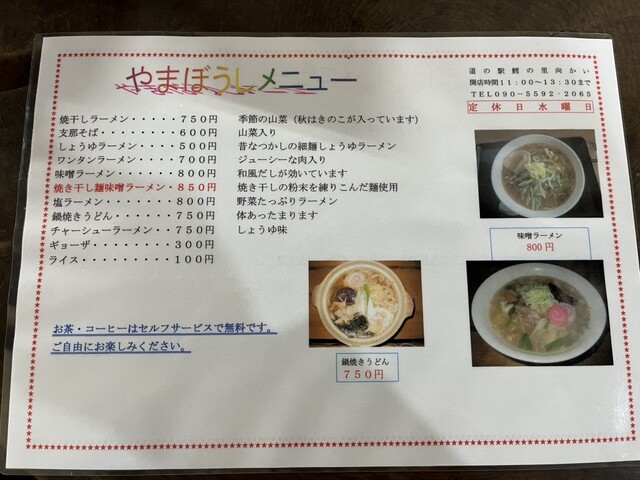 やまぼうしメニュー
道の駅鱈の里向かい
開店時間11:00～13:30まで
TEL090-5592-2065
定休日水曜日
焼干しラーメン・・・・・750円 季節の山菜（秋はきのこが入っています）
支那そば・・・・・・・・600円 山菜入り
しょうゆラーメン・・・・500円 昔なつかしの細麺しょうゆラーメン
ワンタンラーメン・・・・700円 ジューシーな肉入り
味噌ラーメン・・・・・・800円 和風だしが効いています
焼き干し麺味噌ラーメン・850円 焼き干しの粉末を練りこんだ麺使用
塩ラーメン・・・・・・・800円 野菜たっぷりラーメン
鍋焼きうどん・・・・・・750円 体あったまります
チャーシューラーメン・・750円 しょうゆ味
ギョーザ・・・・・・・・300円
ライス・・・・・・・・・100円
味噌ラーメン
800円
お茶・コーヒーはセルフサービスで無料です。
ご自由にお楽しみください。
鍋焼きうどん
750円